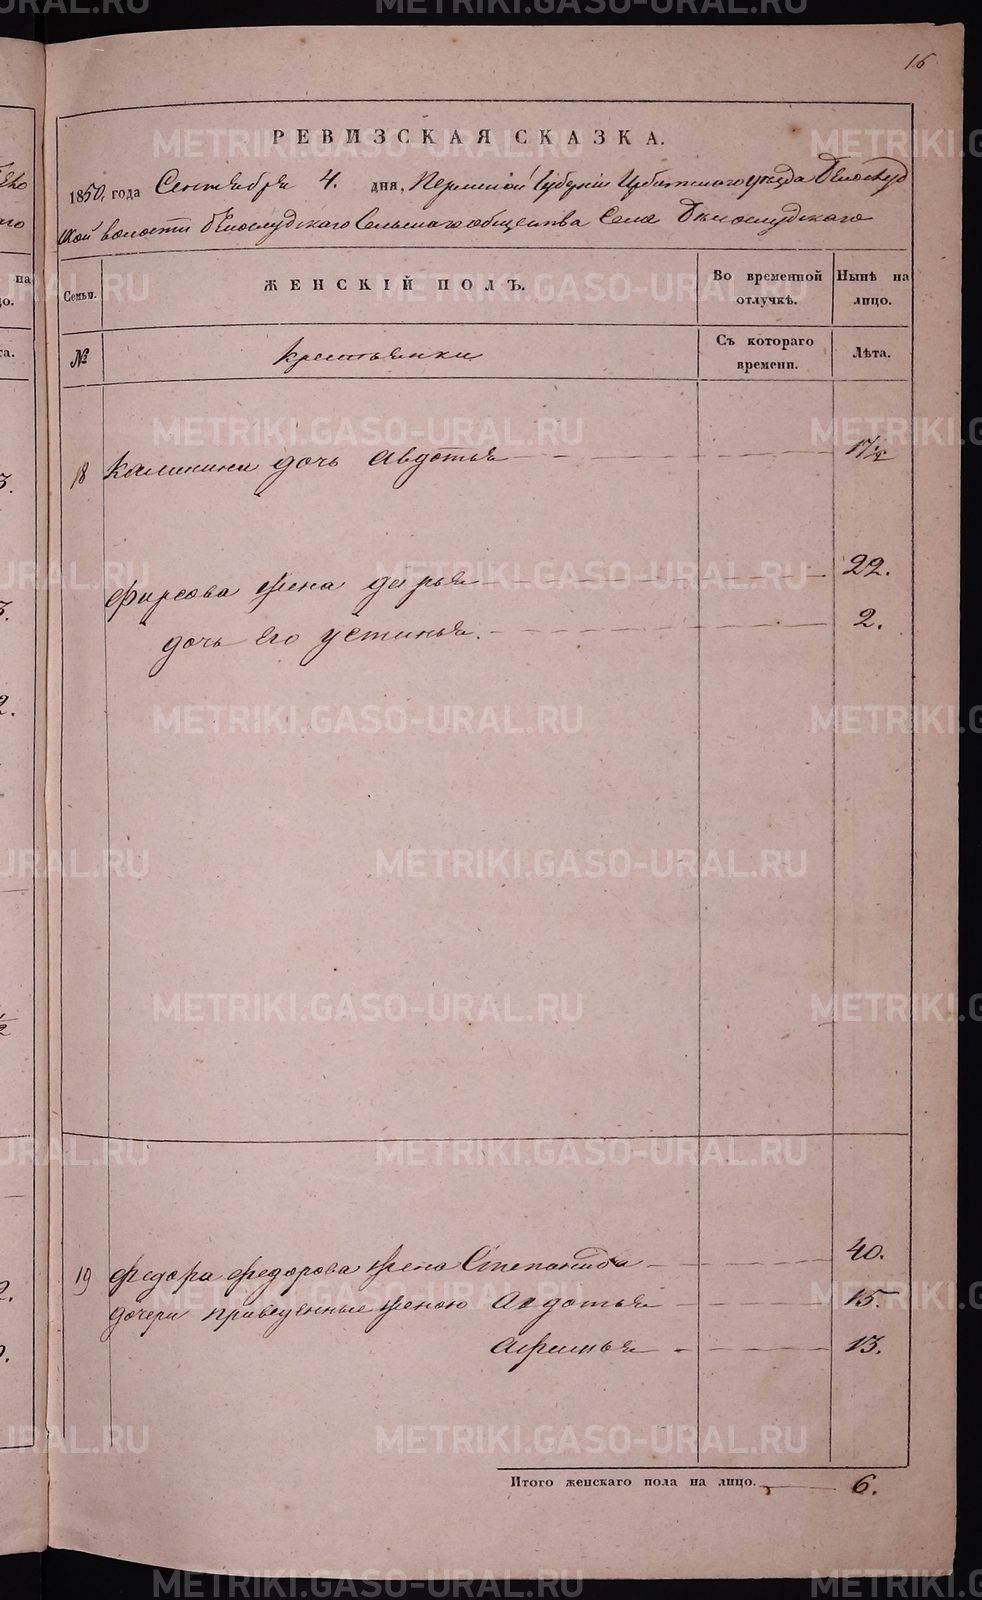 16
РЕВИЗСКАЯ СКАЗКА.
1850, года Сентября 4. дня, Пермской Губерніи Ирбитского уезда Белослуд
ской волости Белослудского Сельскаго общества Села Белослудского
Семьи. ЖЕНСКІЙ ПОЛЪ. Во временной отлучкѣ. Нынѣ на лицо.
№ Крестьянки Съ котораго времени. Лѣта.
18 Калинина дочь Авдотья 17½
Фирсова жена дарья 22.
дочь его устинья. 2.
19 Федора Федорова жена Степанида 40.
дочери приведенные женою Авдотья 15.
13.
Итого женскаго пола на лицо. 6.
METRIKI.GASO-URAL.RU